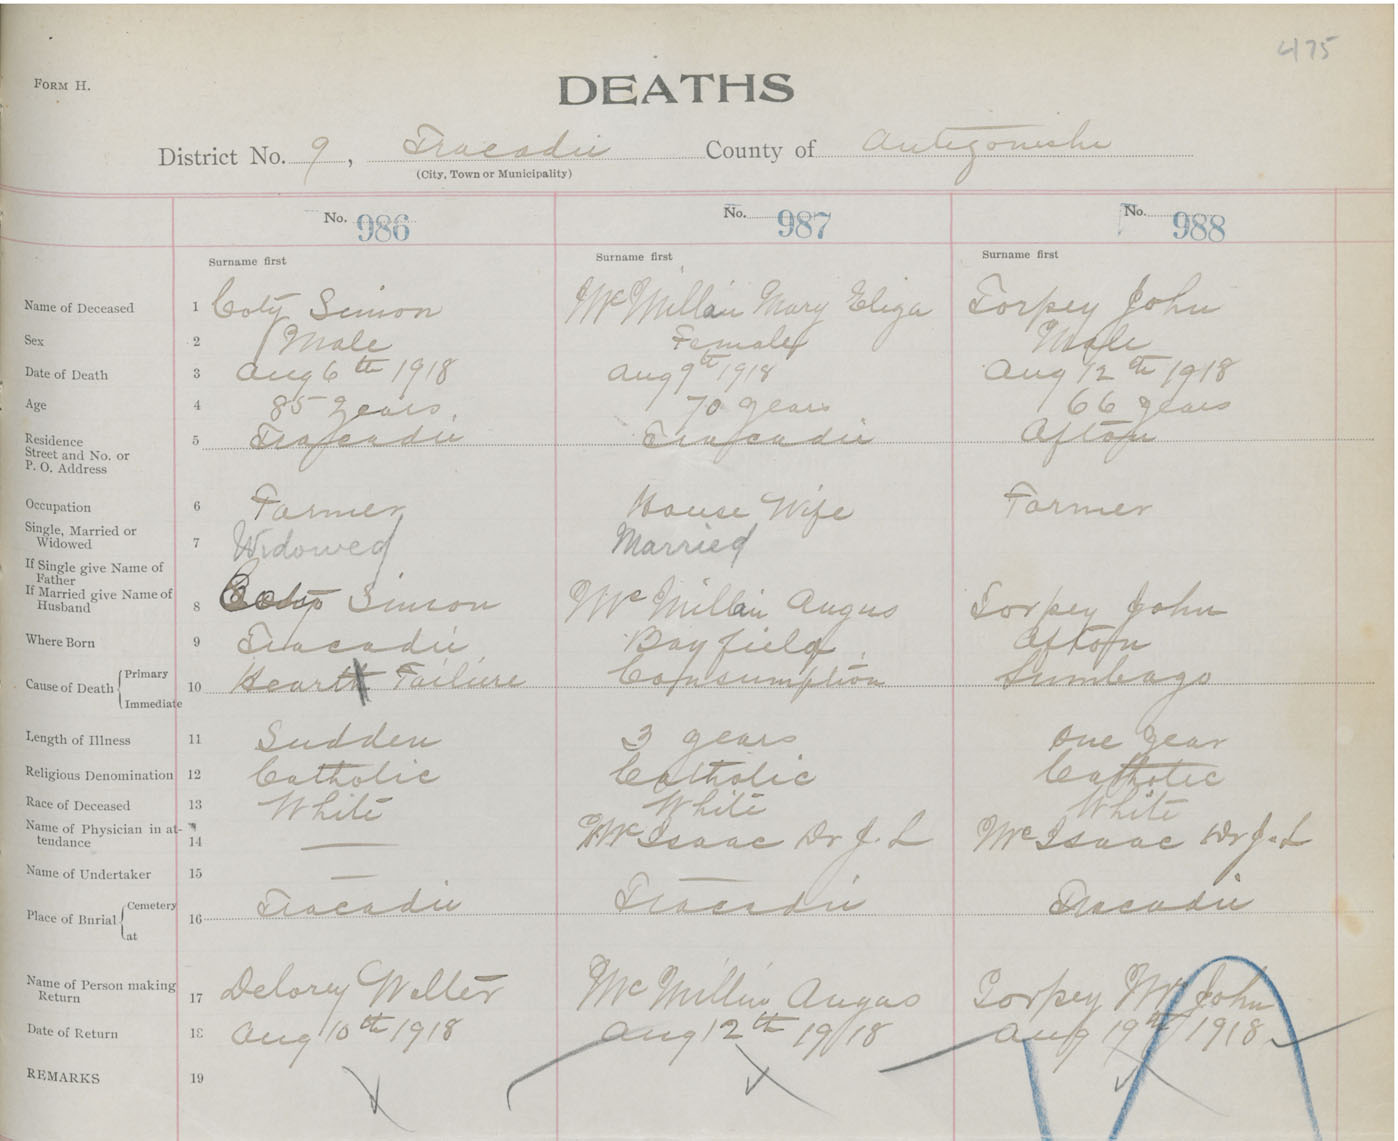 475
FORM H.
DEATHS
District No. 9, Tracadie County of Antigonishe
(City, Town or Municipality)
No. 986 No. 987 No. 988
Surname first Surname first Surname first
Name of Deceased 1 Coty Simon McMillan Mary Eliza Torpey John
Sex 2 Male Female Male
Date of Death 3 Aug 6th 1918 Aug 9th 1918 Aug 12th 1918
Age 4 85 years. 70 years 66 years
Residence
Street and No. or
P. O. Address 5 Tracadie Tracadie Afton
Occupation 6 Farmer House Wife Farmer
Single, Married or
Widowed 7 Widowed Married
If Single give Name of
Father
If Married give Name of
Husband 8 Coty Simon McMillan Angus Torpey John
Where Born 9 Tracadie Bayfield Afton
Cause of Death { Primary
Immediate 10 Heart Failure Consumption Lumbago
Length of Illness 11 Sudden 3 years One year
Religious Denomination 12 Catholic Catholic Catholic
Race of Deceased 13 White White White
Name of Physician in at-
tendance 14 — McIsaac Dr J. L McIsaac Dr J. L
Name of Undertaker 15 — —
Place of Burial { Cemetery
at 16 Tracadie Tracadie Tracadie
Name of Person making
Return 17 Delorey Walter McMillin Angus Torpey Mrs John
Date of Return 18 Aug 10th 1918 Aug 12th 1918 Aug 19th 1918
REMARKS 19